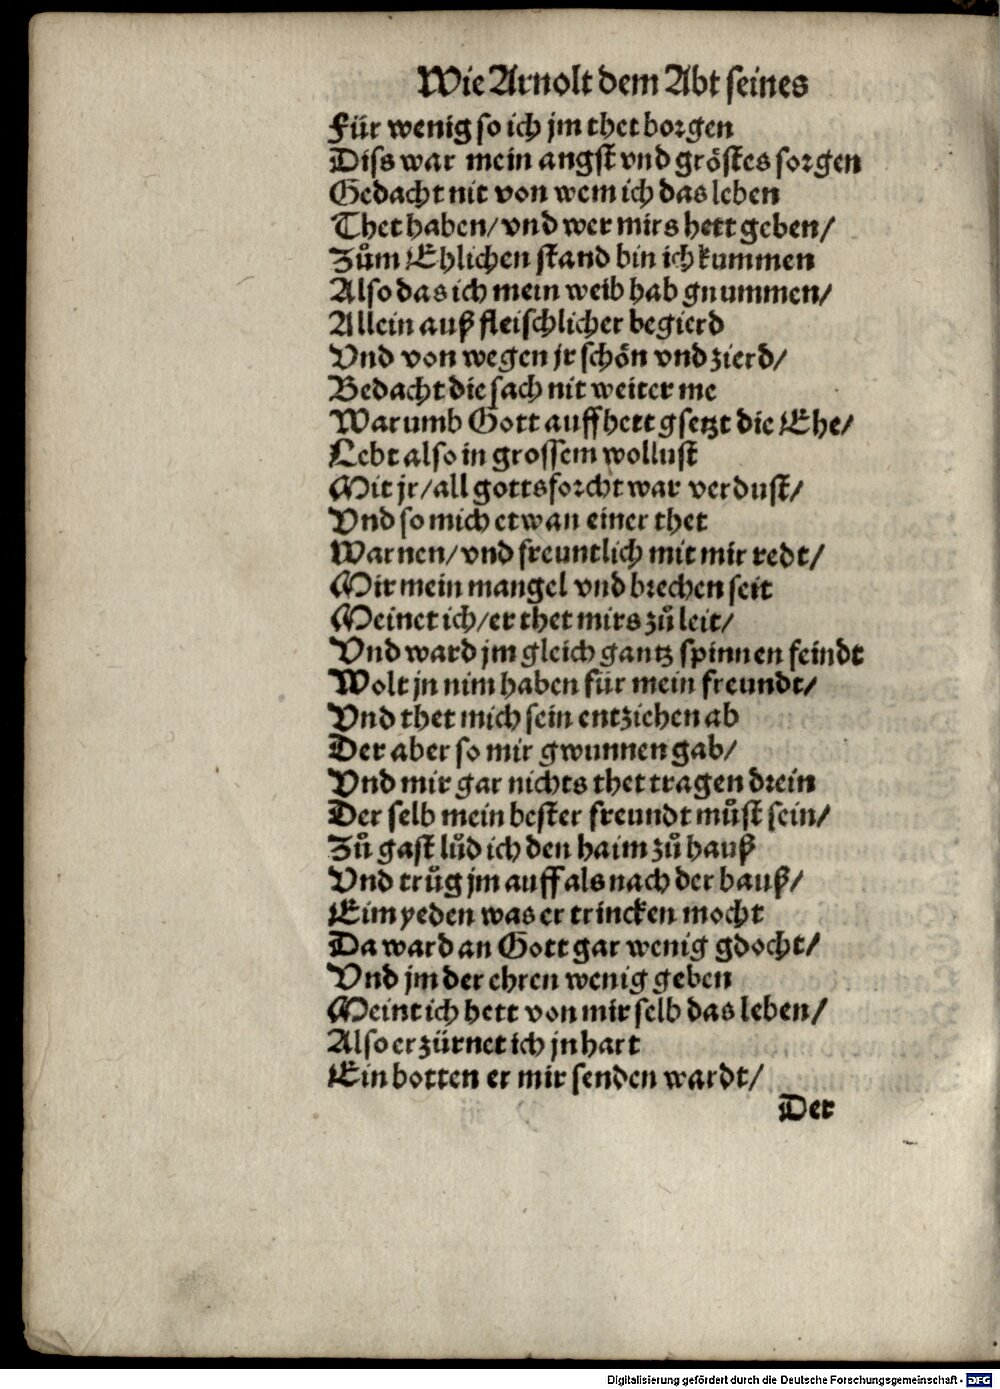 Wie Arnolt dem Abt seines
Für wenig so ich jm thet borgen
Diss war mein angst vnd gröstes sorgen
Gedacht nit von wem ich das leben
Thet haben/ vnd wer mirs hett geben/
Zům Ehlichen stand bin ich kummen
Also das ich mein weib hab gnummen/
Allein auß fleischlicher begierd
Vnd von wegen jr schön vnd zierd/
Bedacht die sach nit weiter me
Warumb Gott auff hett gsetzt die Ehe/
Lebt also in grossem wollust
Mit jr/ all gottsforcht war verdust/
Vnd so mich etwan einer thet
Warnen/ vnd freuntlich mit mir redt/
Mir mein mangel vnd brechen seit
Meinet ich/ er thet mirs zů leit/
Vnd ward jm gleich gantz spinnen feindt
Wolt jn nim haben für mein freundt/
Vnd thet mich sein entziehen ab
Der aber so mir gwunnen gab/
Vnd mir gar nichts thet tragen drein
Der selb mein bester freundt můst sein/
Zů gast lůd ich den haim zů hauß
Vnd trůg jm auff als nach der bauß/
Eim yeden was er trincken mocht
Da ward an Gott gar wenig gdocht/
Vnd jm der ehren wenig geben
Meint ich hett von mir selb das leben/
Also erzürnet ich jn hart
Ein botten er mir senden wardt/
Der
Digitalisierung gefördert durch die Deutsche Forschungsgemeinschaft - DFG